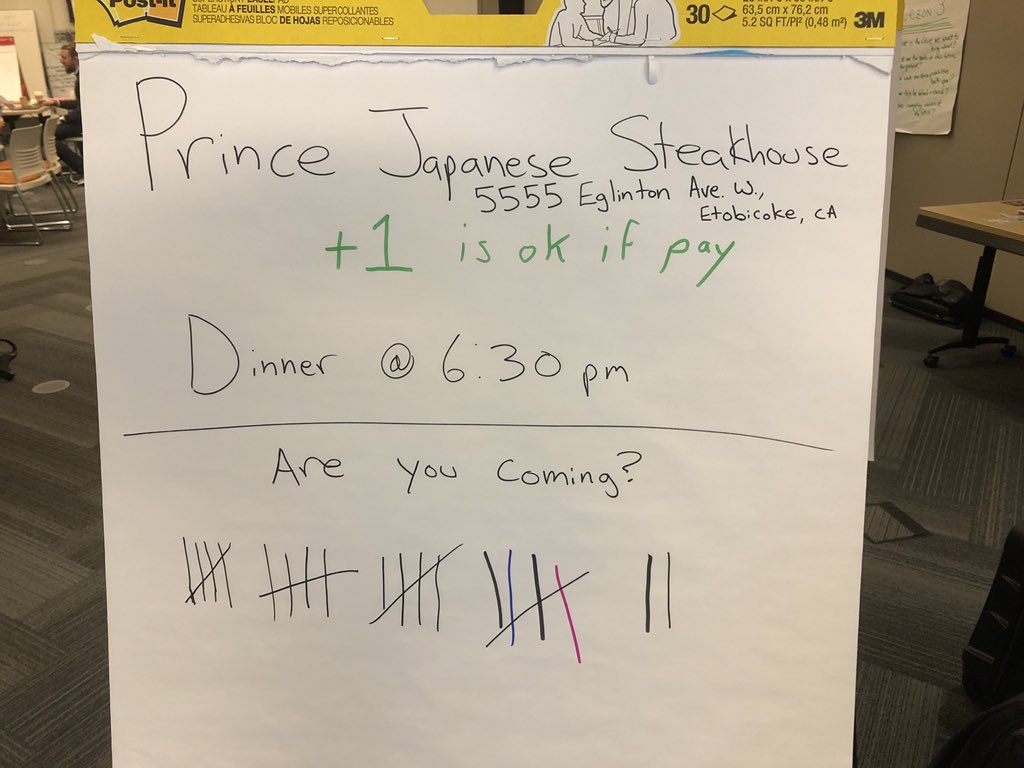 Post-it
TABLEAU À FEUILLES MOBILES SUPERCOLLANTES
SUPERADHESIVAS BLOC DE HOJAS REPOSICIONABLES
30
63,5 cm x 76,2 cm
5.2 SQ FT/PI² (0,48 m²)
3M
Prince Japanese Steakhouse
5555 Eglinton Ave. W.,
Etobicoke, CA
+1 is ok if pay
Dinner @ 6:30 pm
Are you coming?